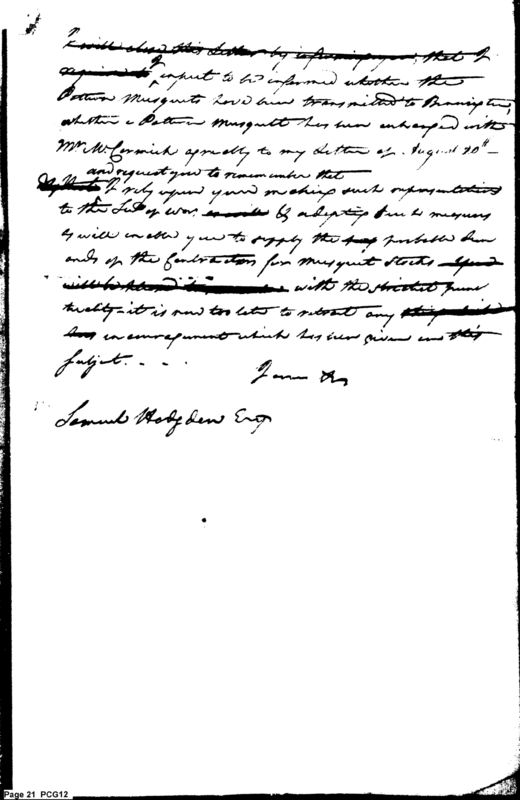 I will close this Letter by informing you, that I
required to I expect to be informed whether the
Pattern Musquets have been transmitted to Bennington,
whether a Pattern Musquett has been exchanged with
Mr. McCormick agreeably to my Letter of August 20th —
and request you to remember that
I rely upon your making such representations
to the Secy of War, & by adopting such measures
as will enable you to supply the probable dem
ands of the Contractors for Musquet Stocks
will be with the strictest punc
tuality — it is now too late to retract any
encouragement which has been given on this
subject. . . .
I am &c
Samuel Hodgden Esq
Page 21 PCG12